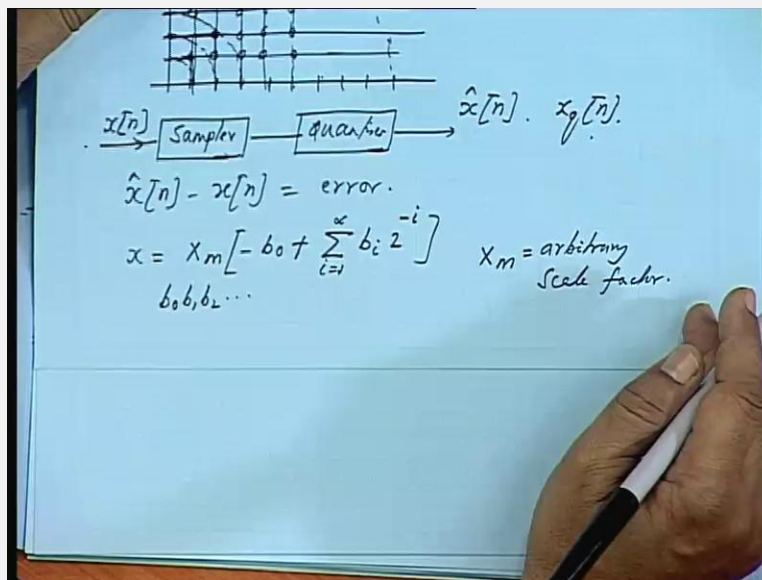 x[n] Sampler Quantizer x̂[n]. x_q[n].
x̂[n] - x[n] = error.
x = X_m[-b_0 + ∑_{i=1}^{∞} b_i 2^{-i}] X_m = arbitrary
scale factor.
b_0 b_1 b_2 ...